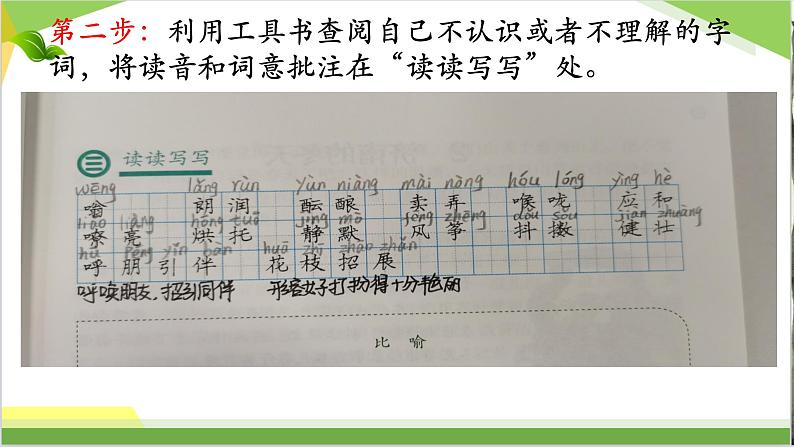 第二步：利用工具书查阅自己不认识或者不理解的字
词，将读音和词意批注在“读读写写”处。
三 读读写写
wēng lǎng rùn yùn niàng mài nòng hóu lóng yìng hè
嗡 朗润 酝酿 卖弄 喉咙 应和
liáo liàng hōng tuō jìng mò fēng zhēng dǒu sǒu jiàn zhuàng
嘹亮 烘托 静默 风筝 抖擞 健壮
hū péng yǐn bàn huā zhī zhāo zhǎn
呼朋引伴 花枝招展
呼唤朋友，招引同伴 形容女子打扮得十分艳丽
比 喻